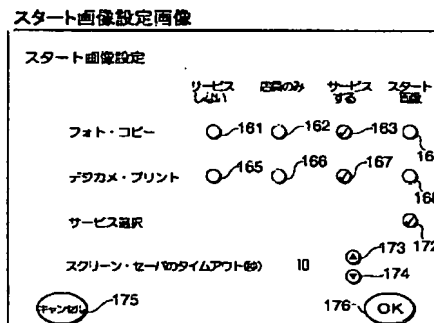 スタート画像設定画像
スタート画像設定
サービスしない 店員のみ サービスする スタート画像
フォト・コピー 161 162 163
デジカメ・プリント 165 166 167
サービス選択 172
173
スクリーン・セーバのタイムアウト(秒) 10
174
キャンセル 175 176 OK